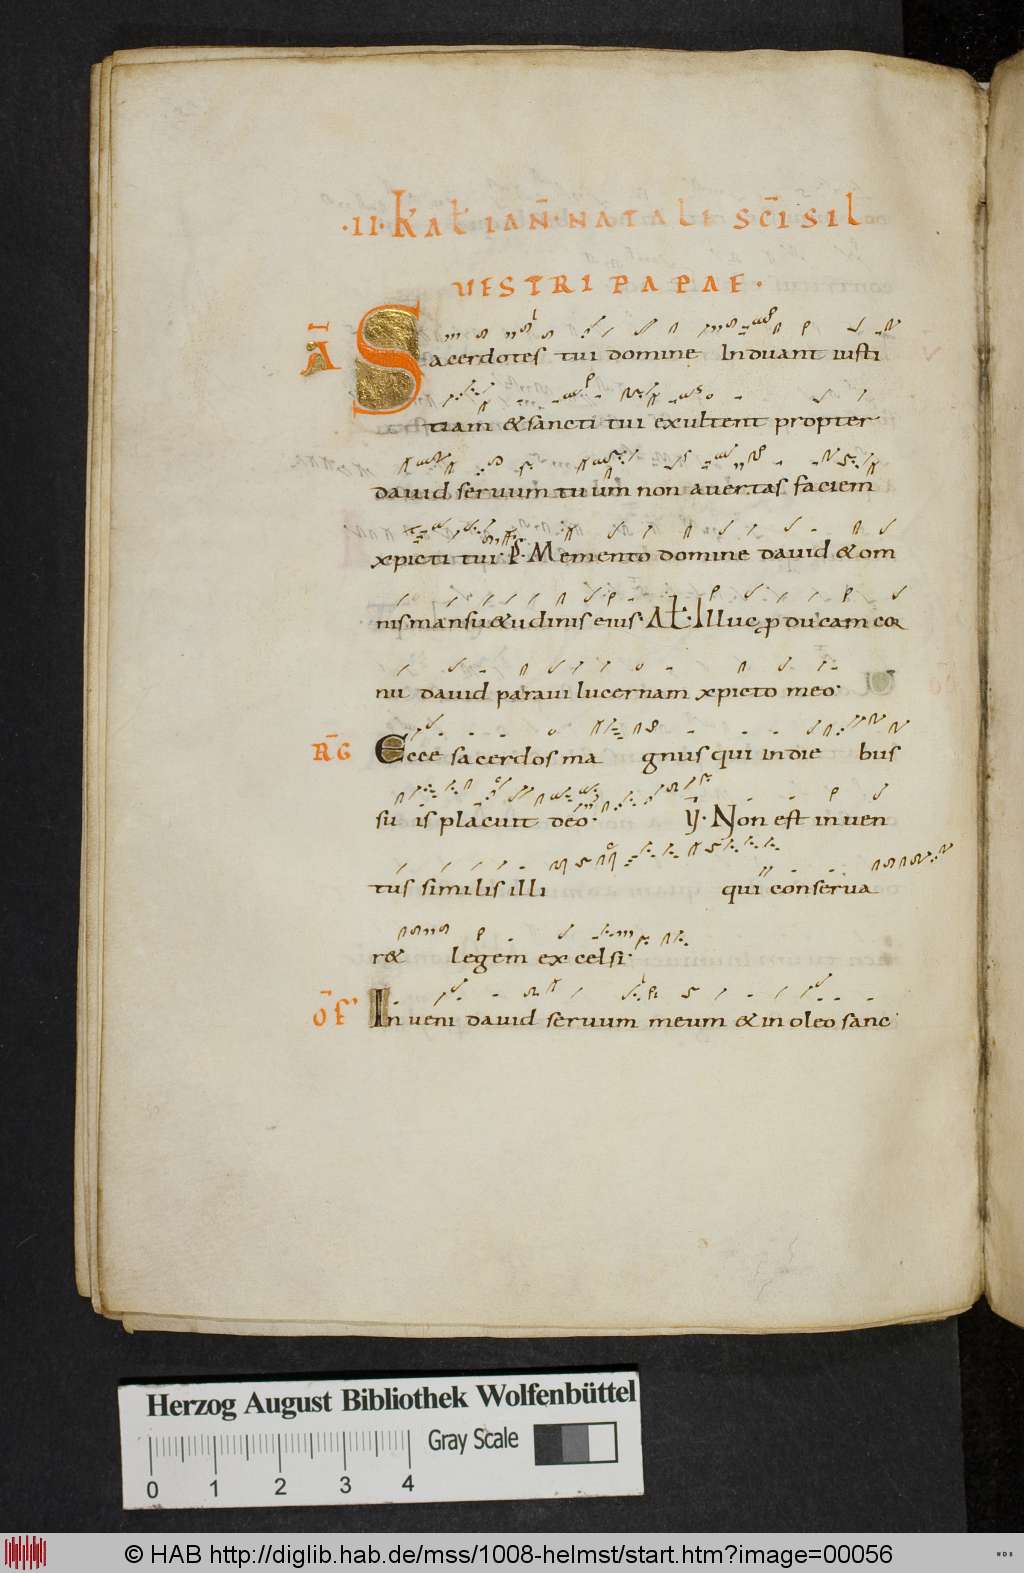 ·II· Kał IAÑ· NATALI SC̄I SIL
VESTRI PAPAE·
Ā Sacerdotes tui domine Induant iusti
tiam & sancti tui exultent propter
dauid seruum tuum non auertas faciem
xpicti tui· P̄· Memento domine dauid & om
nis mansu&udinis eius· Ał· Illuc ꝓducam cor
nu dauid paraui lucernam xpicto meo·
R̄G Ecce sacerdos ma gnus qui in die bus
su is placuit deo· V̄· Non est inuen
tus similis illi qui conserua
r& legem excelsi·
ŌF Inueni dauid seruum meum & in oleo sanc
Herzog August Bibliothek Wolfenbüttel
Gray Scale
0 1 2 3 4
© HAB http://diglib.hab.de/mss/1008-helmst/start.htm?image=00056
WDB